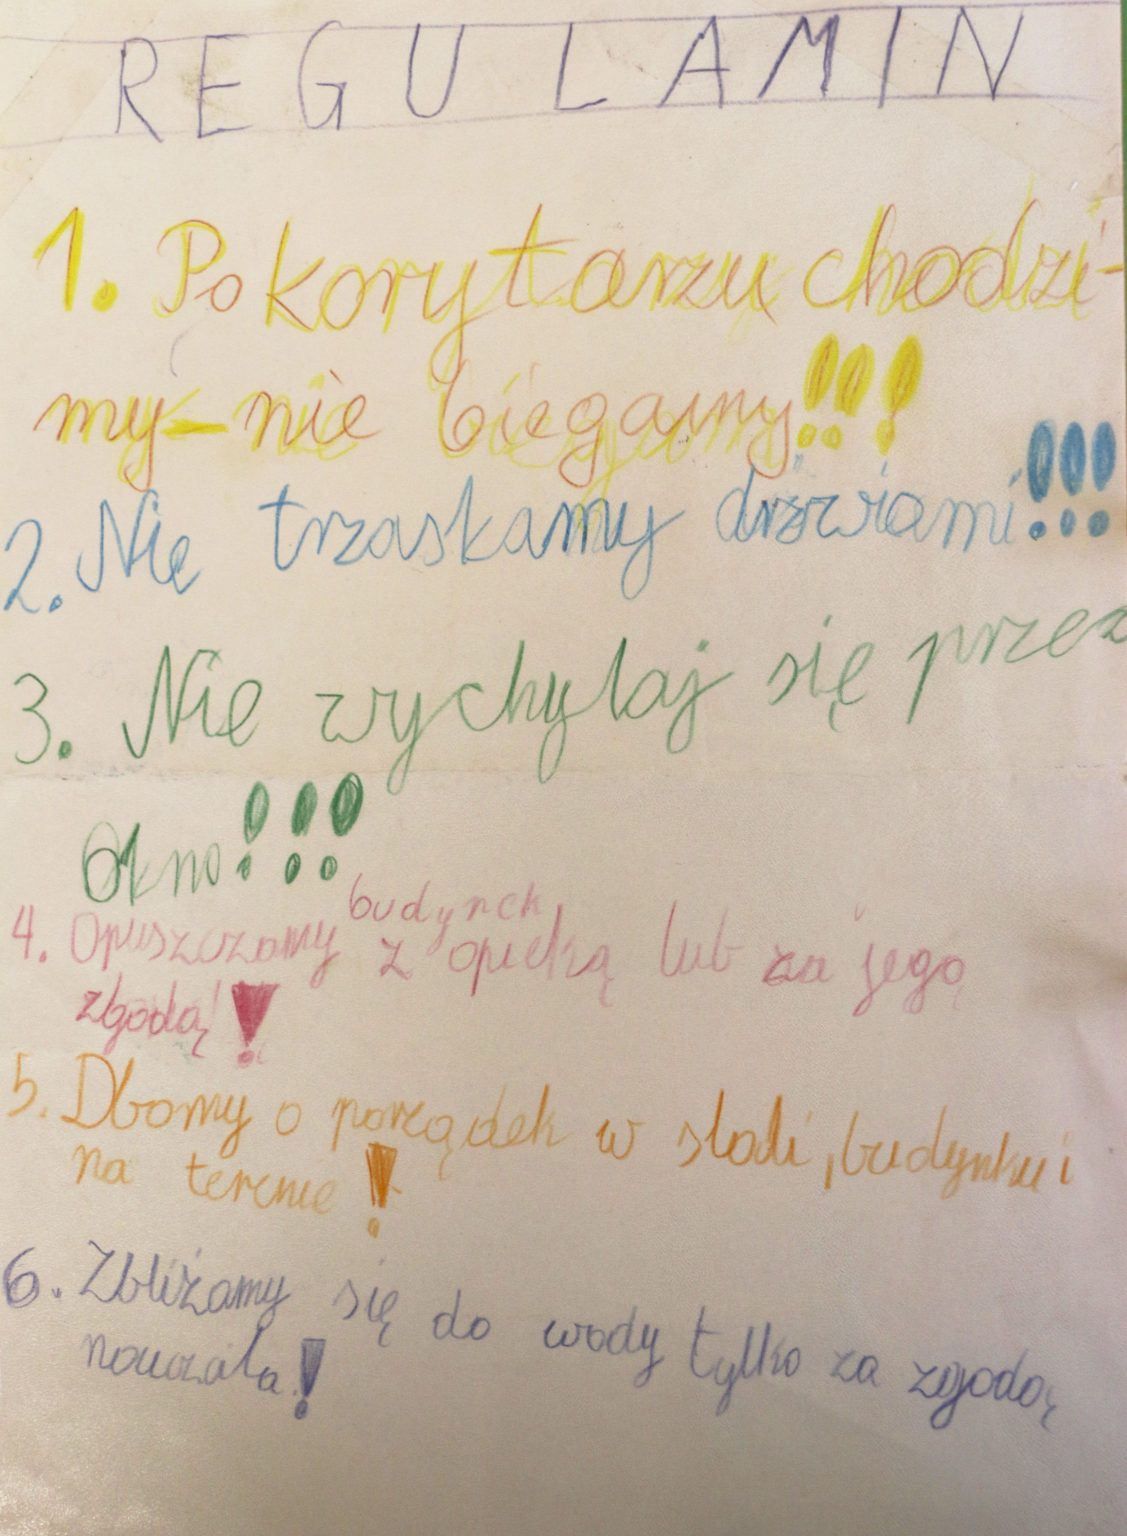 REGULAMIN
1. Po korytarzu chodzi-
my-nie biegamy!!!
2. Nie trzaskamy drzwiami!!!
3. Nie wychylaj się przez
okno!!!
budynek
4. Opuszczamy z opieką lub za jego
zgodą!!
5. Dbamy o porządek w stodi, budynku i
na terenie!
6. Zbliżamy się do wody tylko za zgodą
nauczala!